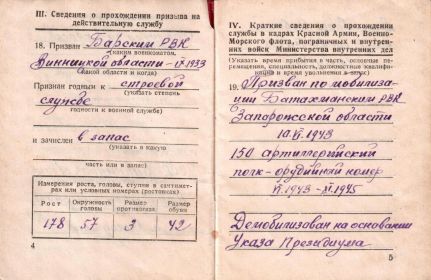 III. Сведения о прохождении призыва на
действительную службу
18. Призван Барским РВК
(каким военкоматом,
Винницкой области - IX 1933
какой области и когда)
Признан годным к строевой
(указать степень
службе
годности к военной службе)
и зачислен в запас
(указать в какую
часть или в запас)
Измерения роста, головы, ступни в сантимет-
рах или условных номерах (ростовках)
Рост
Окружность головы
Размер противогаза
Размер обуви
178 57 3 42
4
IV. Краткие сведения о прохождении
службы в кадрах Красной Армии, Военно-
Морского флота, пограничных и внутрен-
них войск Министерства внутренних дел
(Указать время прибытия в часть, основные пере-
мещения, специальность, должностные квалифика-
ции и время увольнения в запас)
19. Призван по мобилиза-
ции РВК
Запорожской области
1943
150 артиллерийский
полк - орудийный номер
VI. 1943 - XI. 1945
Демобилизован на основании
Указа Президиума
5